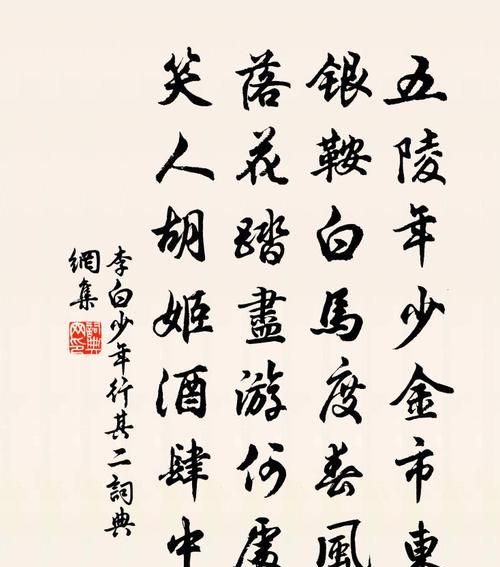 五陵年少金市東
銀鞍白馬度春風
落花踏盡游何處
笑人胡姬酒肆中
李白少年行其二詞典
網集